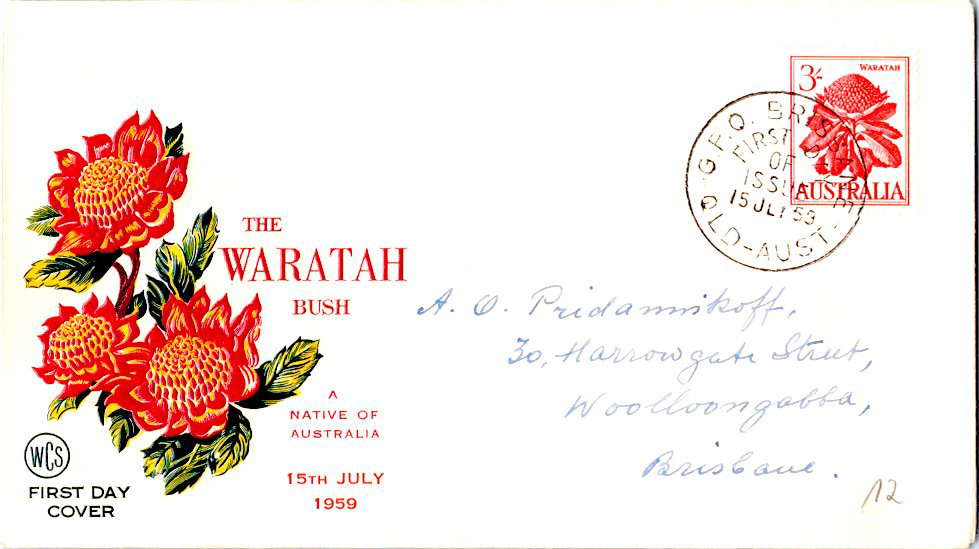 3/-
WARATAH
AUSTRALIA
G.P.O. BRISBANE
FIRST DAY
OF
ISSUE
15 JLY 59
QLD-AUST-
THE
WARATAH
BUSH
A
NATIVE OF
AUSTRALIA
15TH JULY
1959
WCS
FIRST DAY
COVER
A. O. Pridannikoff,
30, Harrowgate Street,
Woolloongabba,
Brisbane.
12